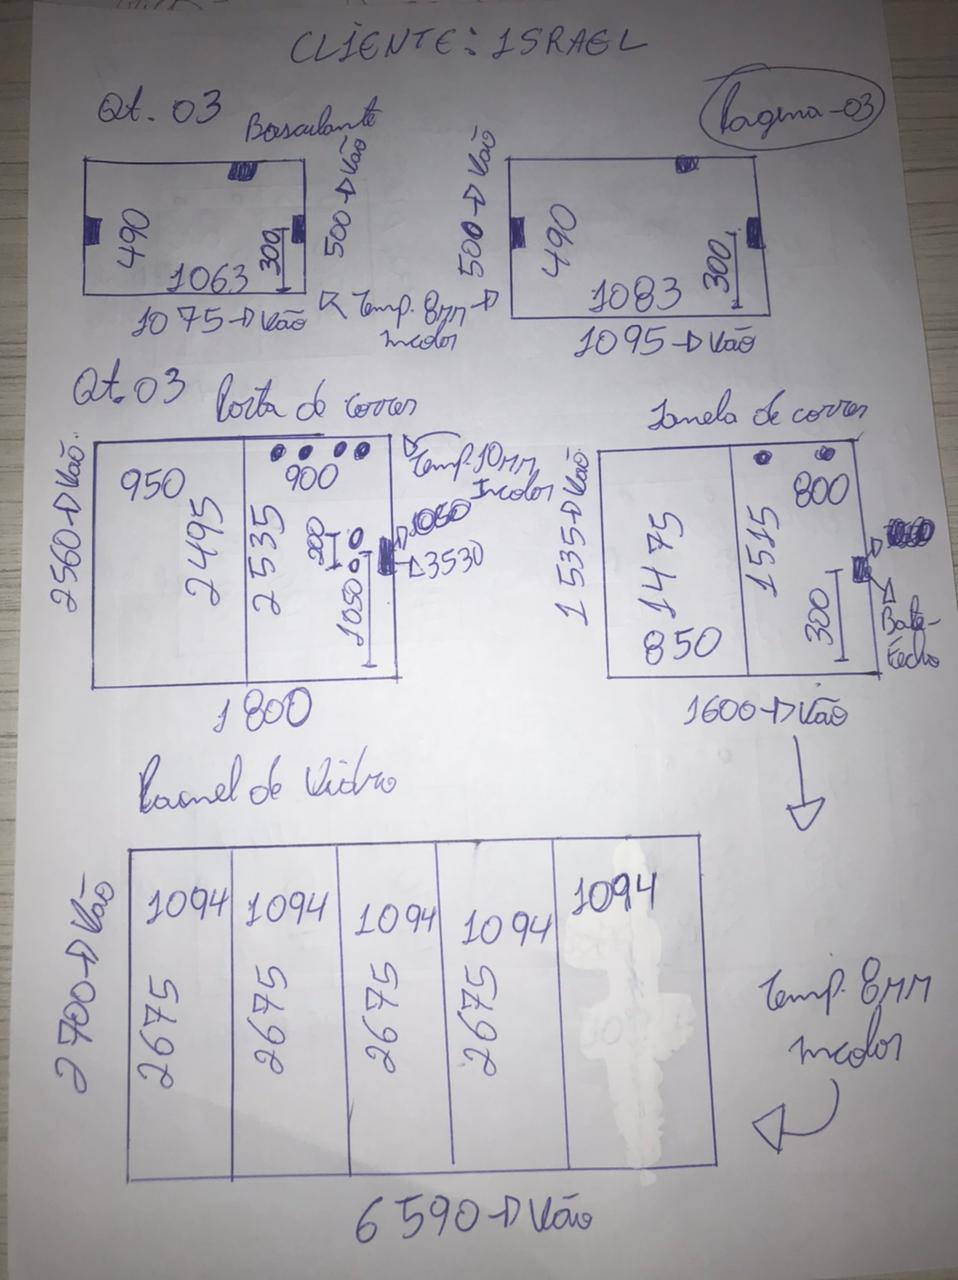 CLIENTE: ISRAEL
Pagina-03
Qt. 03
Basculante
490
300
1063
1075→Vão
500→Vão
Temp. 8mm
Incolor
500→Vão
490
300
1083
1095→Vão
Qt. 03
Porta de correr
2560→Vão
950
2495
900
2535
300
1050
1800
Temp. 10mm
Incolor
1050
3530
Janela de correr
1535→Vão
1475
850
800
1515
300
Bate-
fecho
1600→Vão
Painel de Vidro
2700→Vão
1094
1094
1094
1094
1094
2675
2675
2675
2675
6590→Vão
Temp. 8mm
Incolor